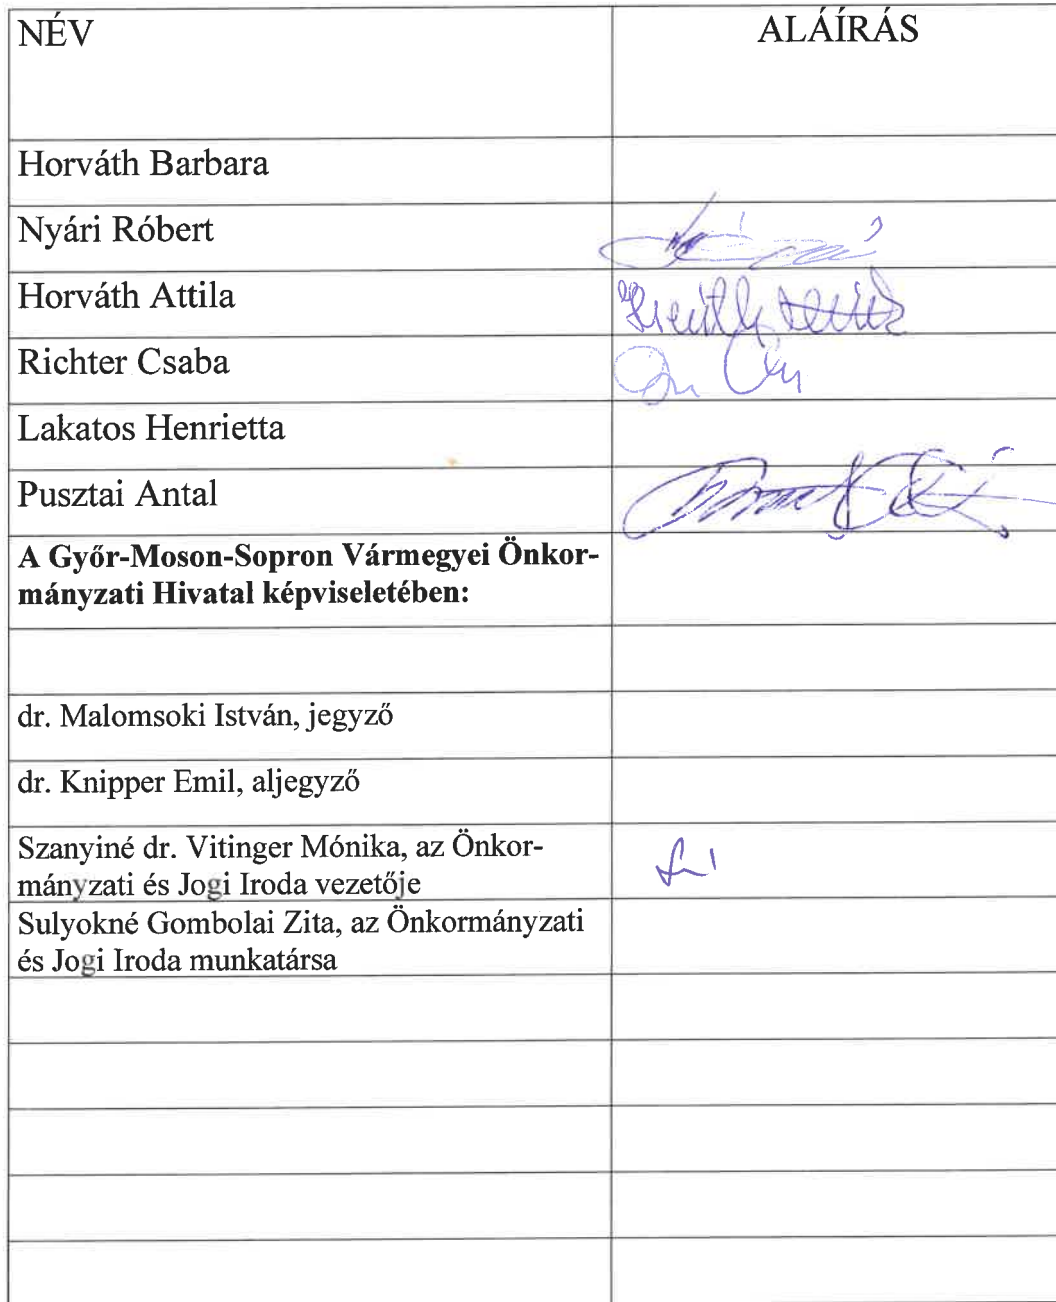 NÉV
ALÁÍRÁS
Horváth Barbara
Nyári Róbert
Horváth Attila
Richter Csaba
Lakatos Henrietta
Pusztai Antal
A Győr-Moson-Sopron Vármegyei Önkor-
mányzati Hivatal képviseletében:
dr. Malomsoki István, jegyző
dr. Knipper Emil, aljegyző
Szanyiné dr. Vitinger Mónika, az Önkor-
mányzati és Jogi Iroda vezetője
Sulyokné Gombolai Zita, az Önkormányzati
és Jogi Iroda munkatársa